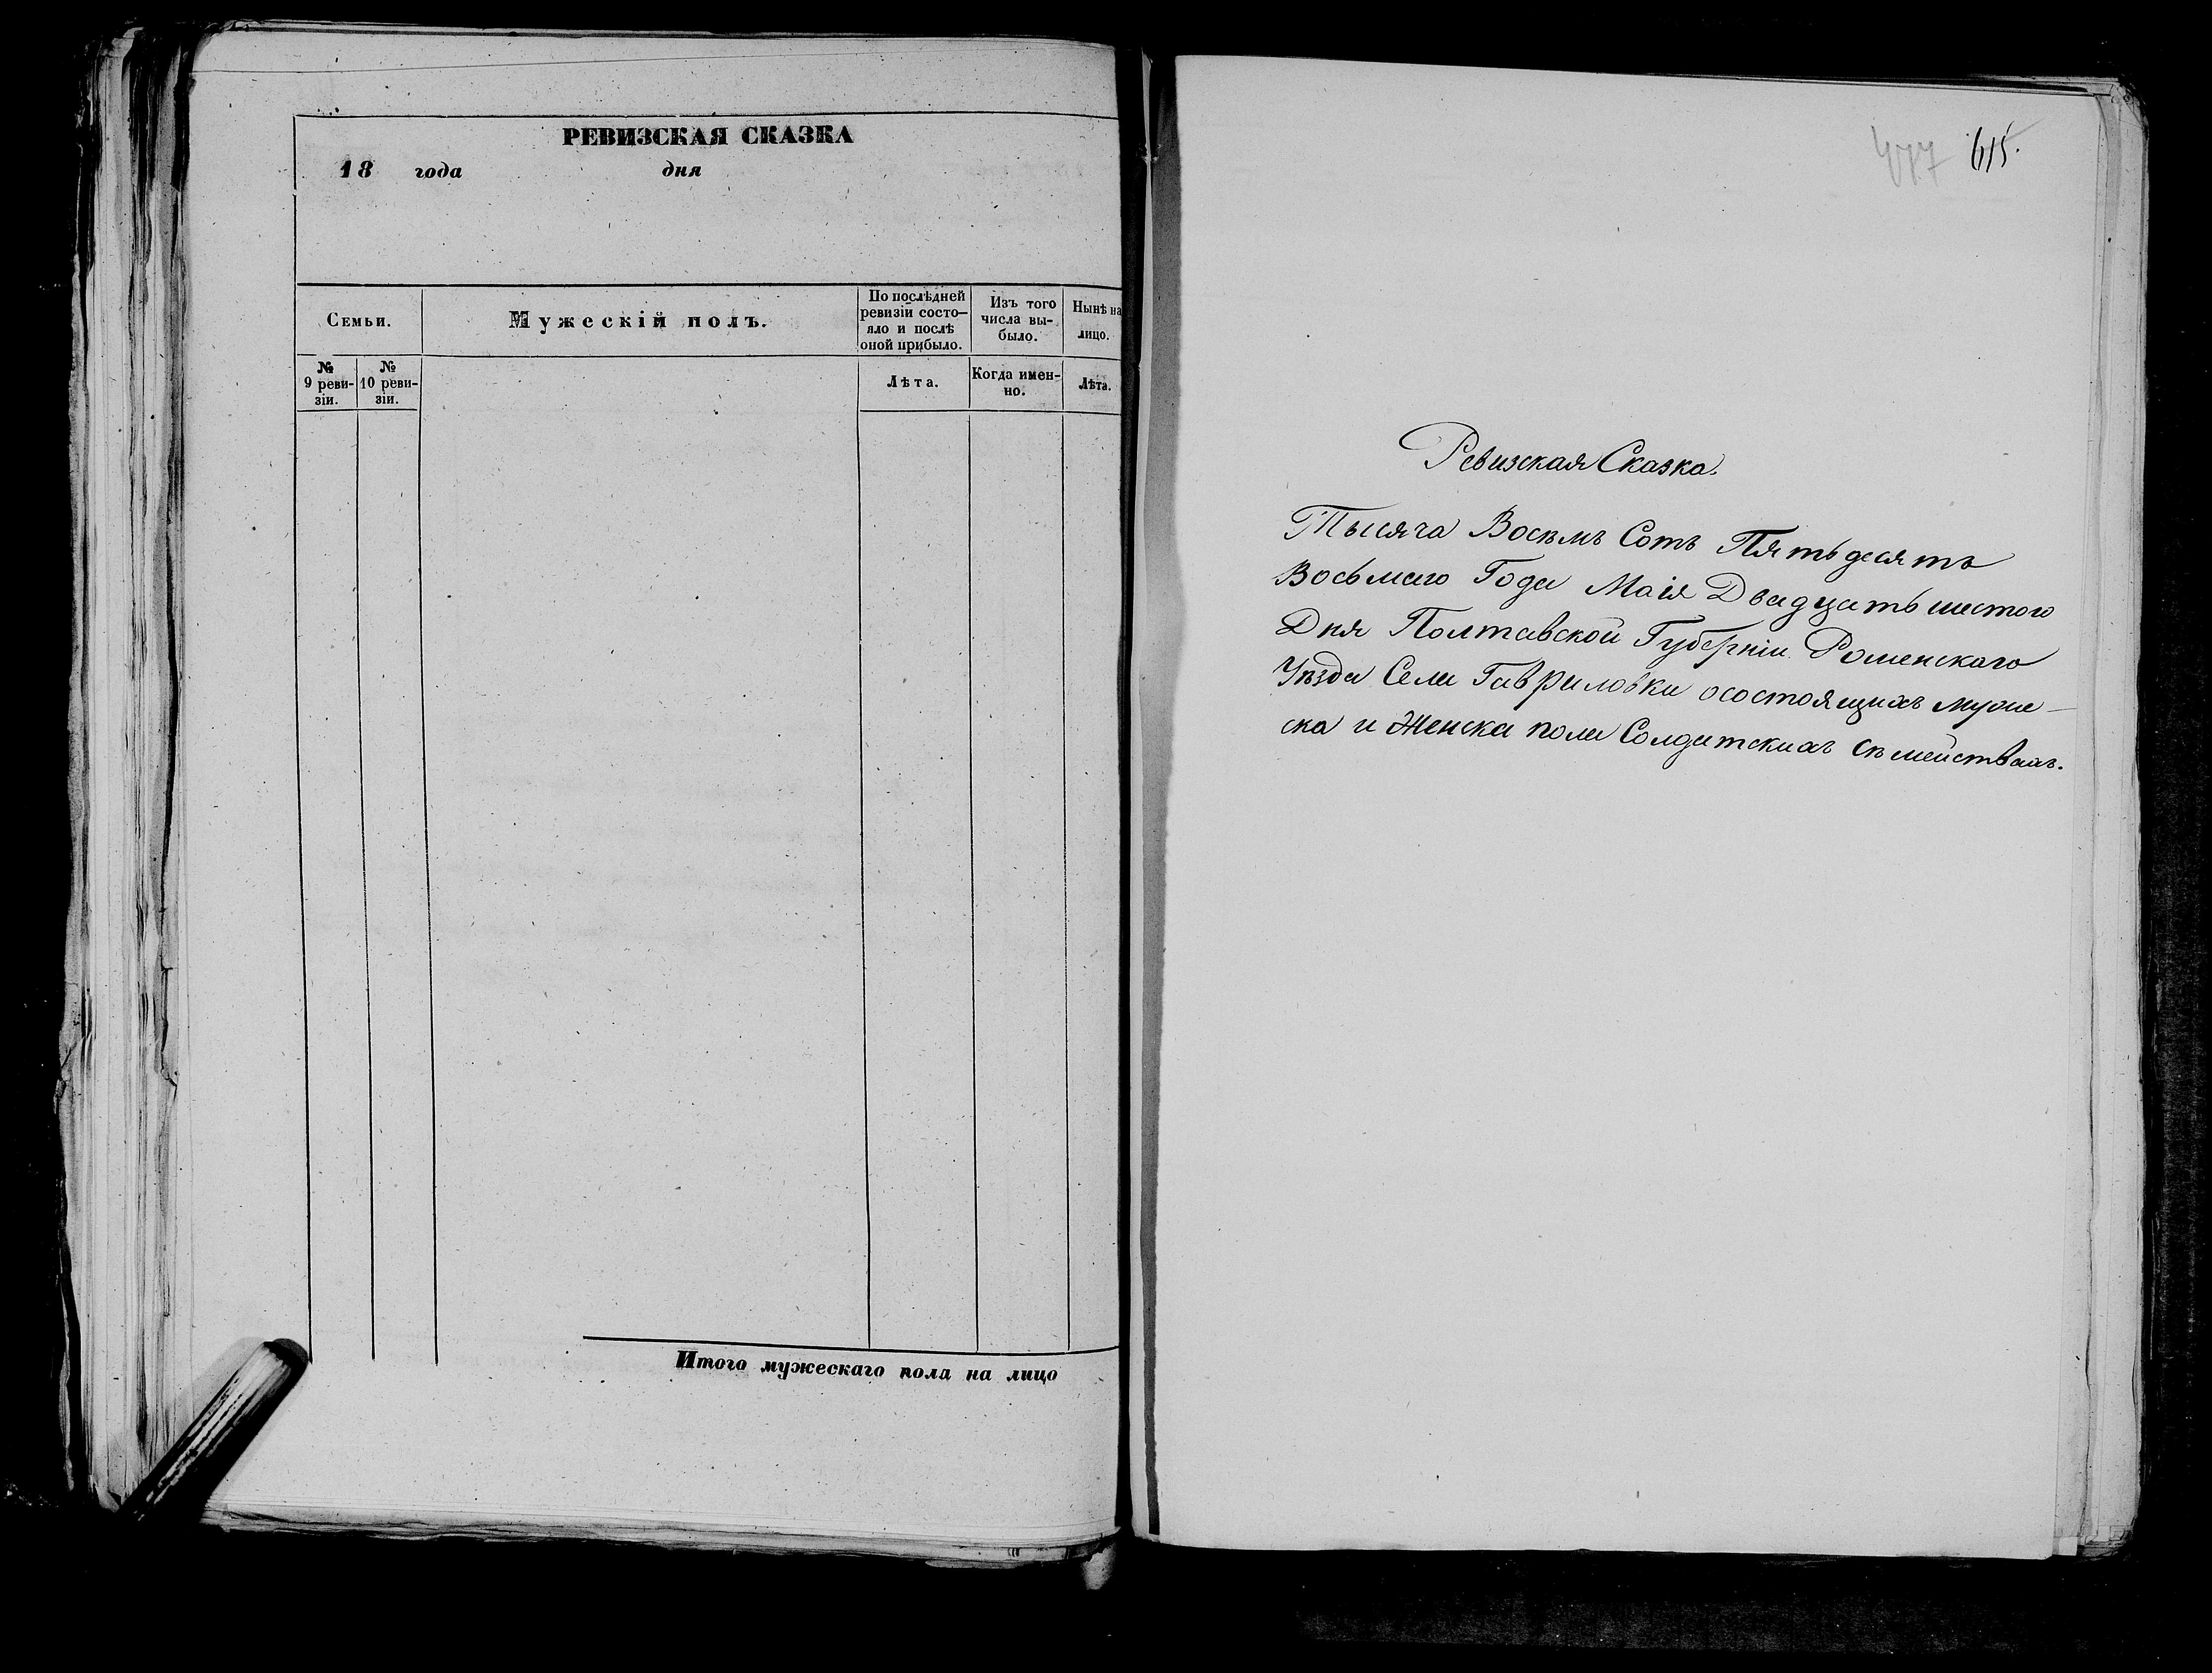 РЕВИЗСКАЯ СКАЗКА
18 года дня
Семьи.
Мужескій полъ.
По послѣдней
ревизіи состо-
яло и послѣ
оной прибыло.
Изъ того
числа вы-
было.
Нынѣ на
лицо.
№
9 реви-
зіи.
№
10 реви-
зіи.
Лѣта.
Когда имен-
но.
Лѣта.
Итого мужескаго пола на лицо
477 615.
Ревизская Сказка.
Тысяча Восѣмъ Сотъ Пятьдесятъ
Восьмаго Года Маія Двадцать шестого
Дня Полтавской Губерніи Роменскаго
Уѣзда Села Гавриловки осостоящихъ муже-
ска и Женска пола Солдатскихъ Сѣмействахъ.